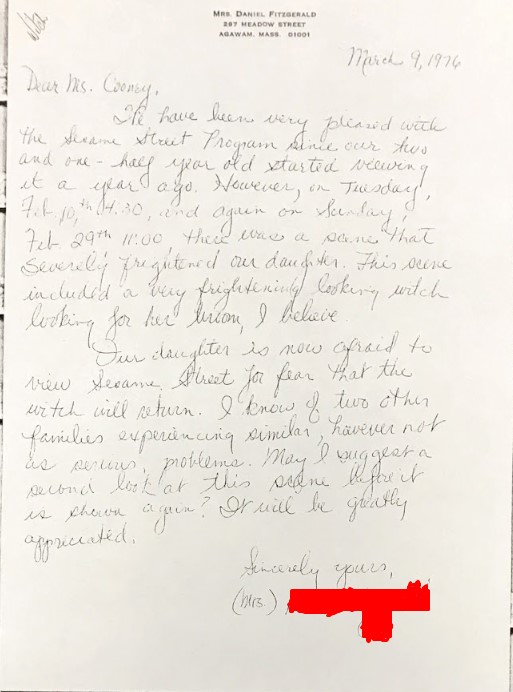 MRS. DANIEL FITZGERALD
287 MEADOW STREET
AGAWAM, MASS. 01001
March 9, 1976
Dear Ms. Cooney,
We have been very pleased with
the Sesame Street Program since our two
and one-half year old started viewing
it a year ago. However, on Tuesday,
Feb. 10th, 4:30, and again on Sunday,
Feb. 29th 11:00, there was a scene that
severely frightened our daughter. This scene
included a very frightening looking witch
looking for her broom, I believe.
Our daughter is now afraid to
view Sesame Street for fear that the
witch will return. I know of two other
families experiencing similar, however not
as serious, problems. May I suggest a
second look at this scene before it
is shown again? It will be greatly
appreciated.
Sincerely yours,
(Mrs.)